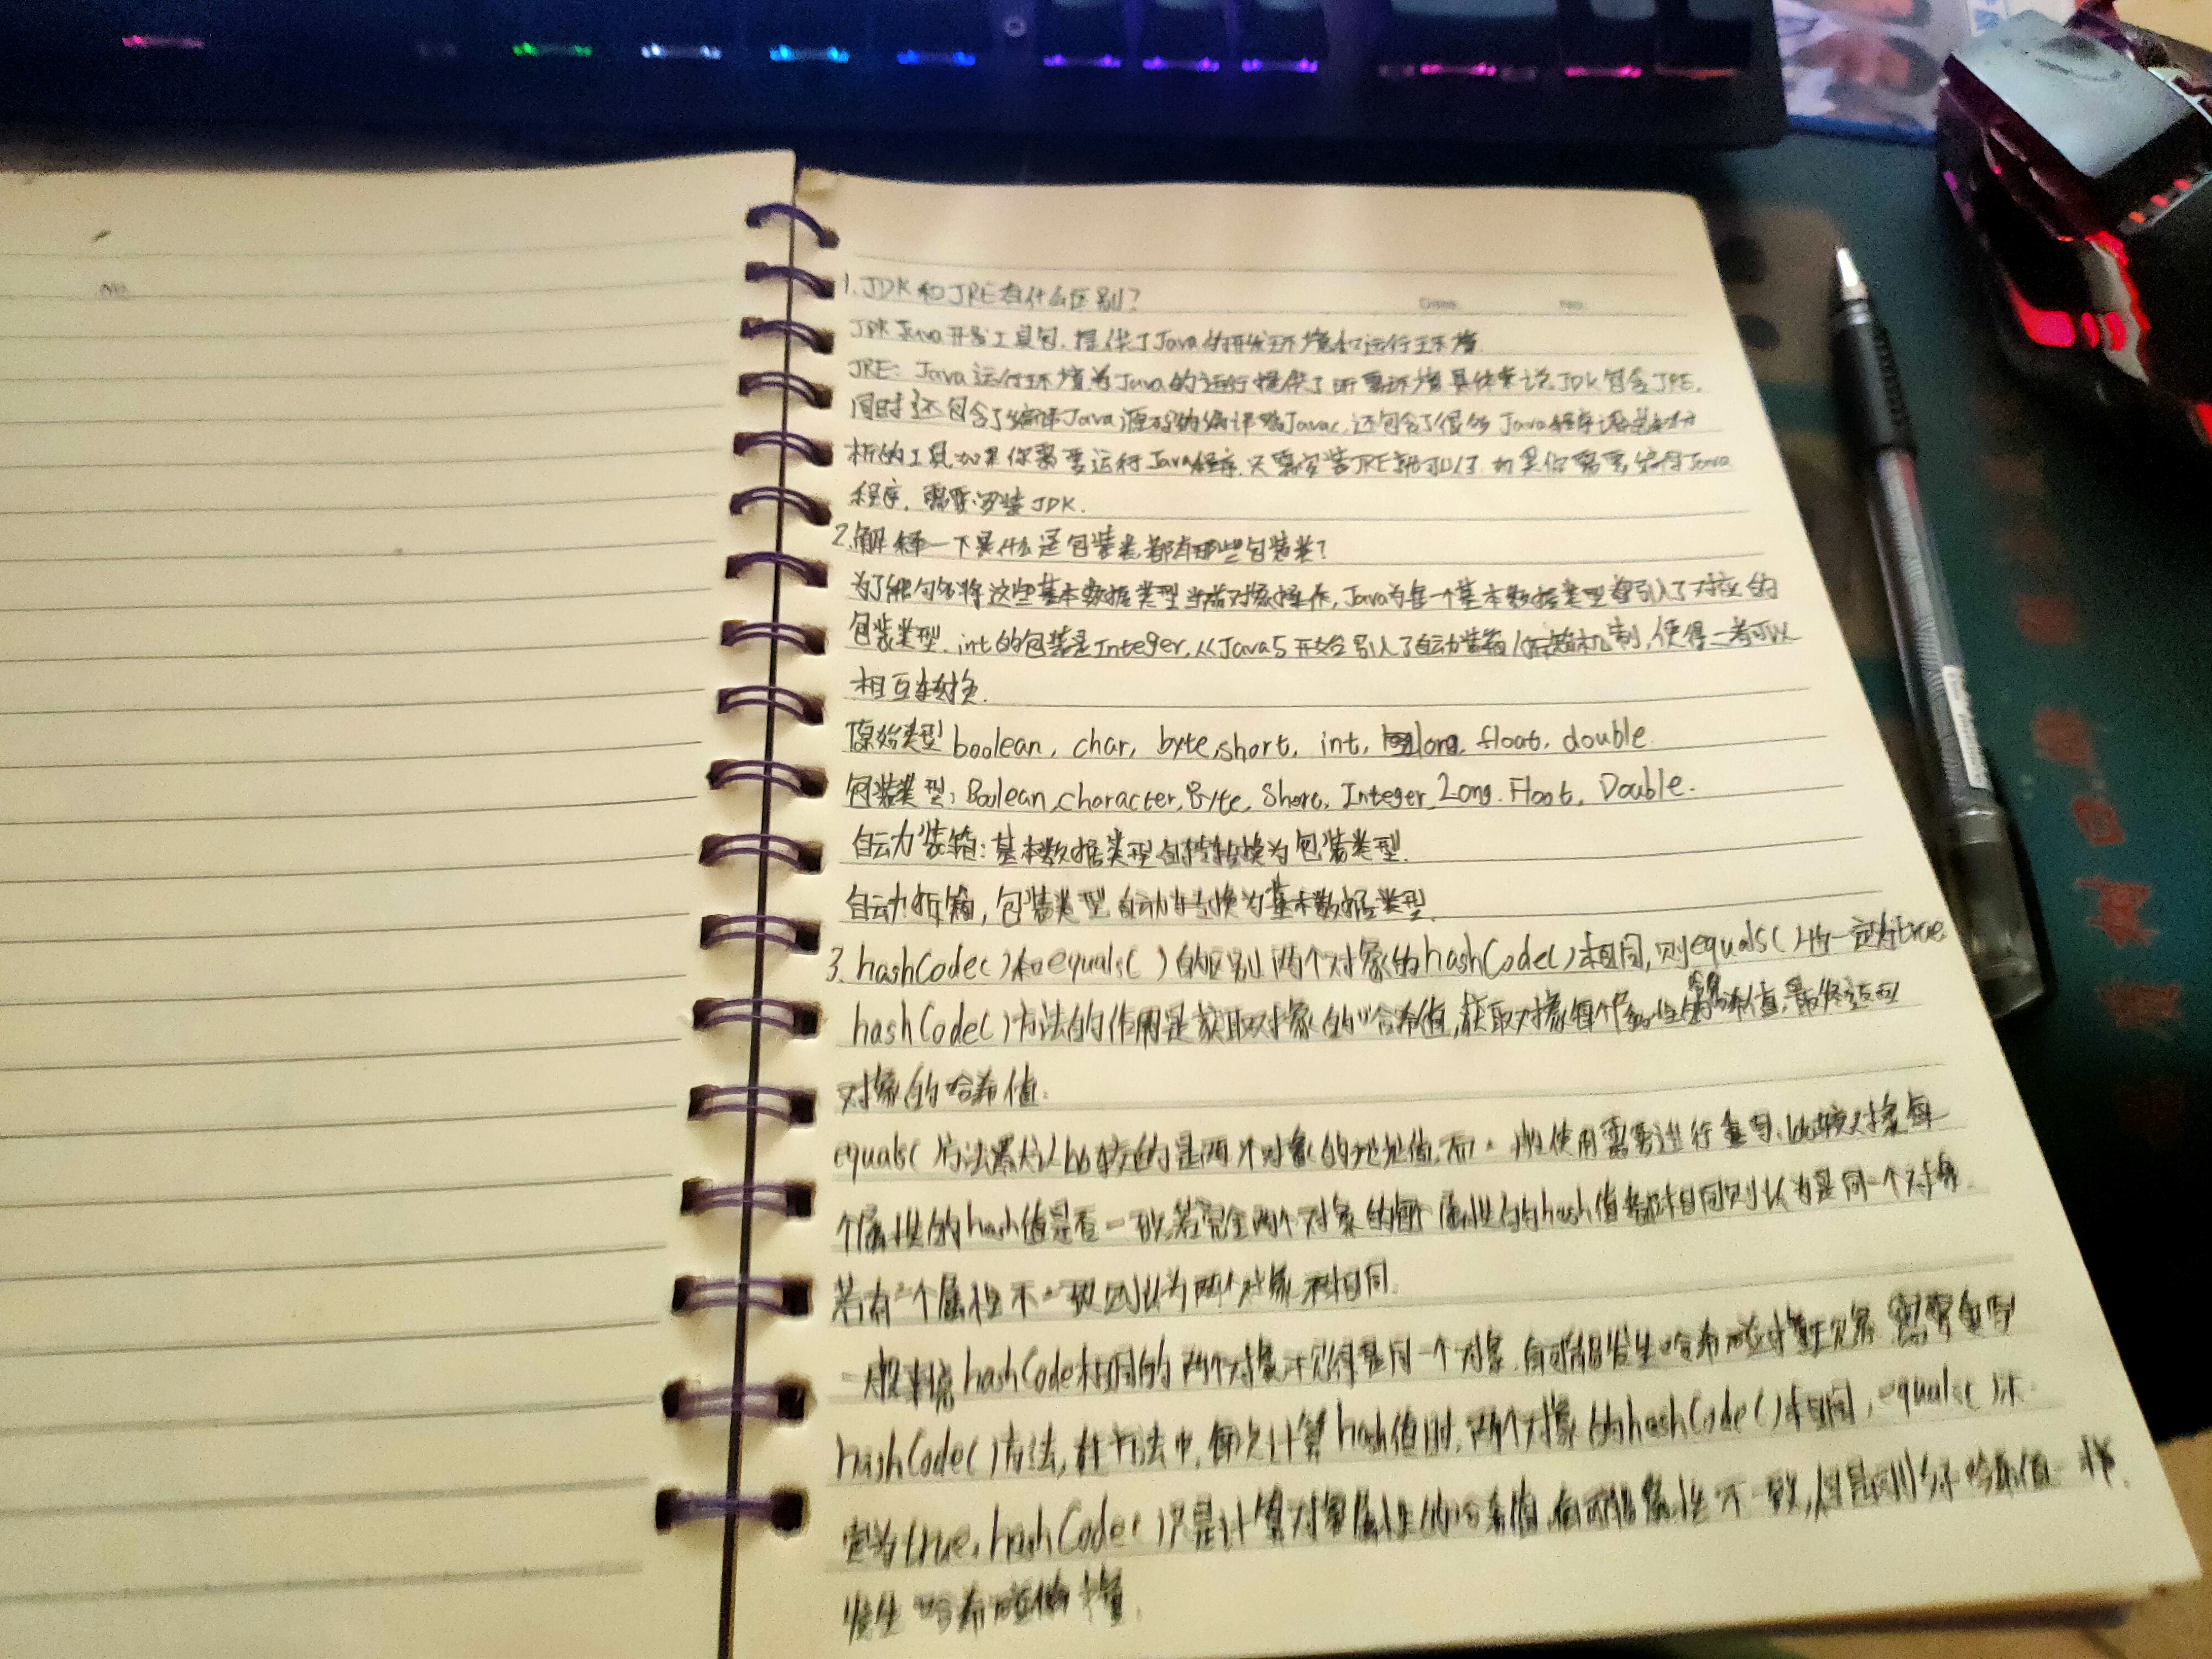 1.JDK和JRE有什么区别?
JDK Java开发工具包.提供了Java的开发环境和运行环境
JRE: Java运行环境为Java的运行提供了所需环境具体来说JDK包含JRE.
同时还包含了编译Java源码的编译器Javac,还包含了很多Java程序调试和分
析的工具如果你需要运行Java程序.只需安装JRE就可以了.如果你需要编写Java
程序.需要安装JDK.
2.解释一下是什么是包装类都有哪些包装类?
为了能够将这些基本数据类型当成对象操作,Java为每一个基本数据类型都引入了对应的
包装类型.int的包装是Integer,从Java5开始引入了自动装箱/拆箱机制,使得二者可以
相互转换.
原始类型boolean, char, byte,short, int, long, float, double.
包装类型:Boolean,character,Byte, Short, Integer, Long. Float, Double.
自动装箱:基本数据类型自动转换为包装类型.
自动拆箱,包装类型自动转换为基本数据类型.
3.hashCode()和equals()的区别两个对象的hashCode()相同,则equals()也一定为true
hashCode()方法的作用是获取对象的哈希值,获取对象每个属性的哈希值,最终返回
对象的哈希值.
equals()方法默认比较的是两个对象的地址值,而一般使用需要进行重写.比较对象每
个属性的hash值是否一致,若完全两个对象的每个属性的hash值都相同则认为是同一个对象.
若有一个属性不一致则认为两个对象不相同.
一般来说hashCode相同的两个对象不见得是同一个对象.有可能发生哈希碰撞现象 需要重写
hashCode()方法,在方法中,每次计算hash值时,两个对象的hashCode()相同, equals()不
定为true, hashCode()只是计算对象属性的哈希值,有可能属性不一致,但是哈希值一样
发生哈希碰撞